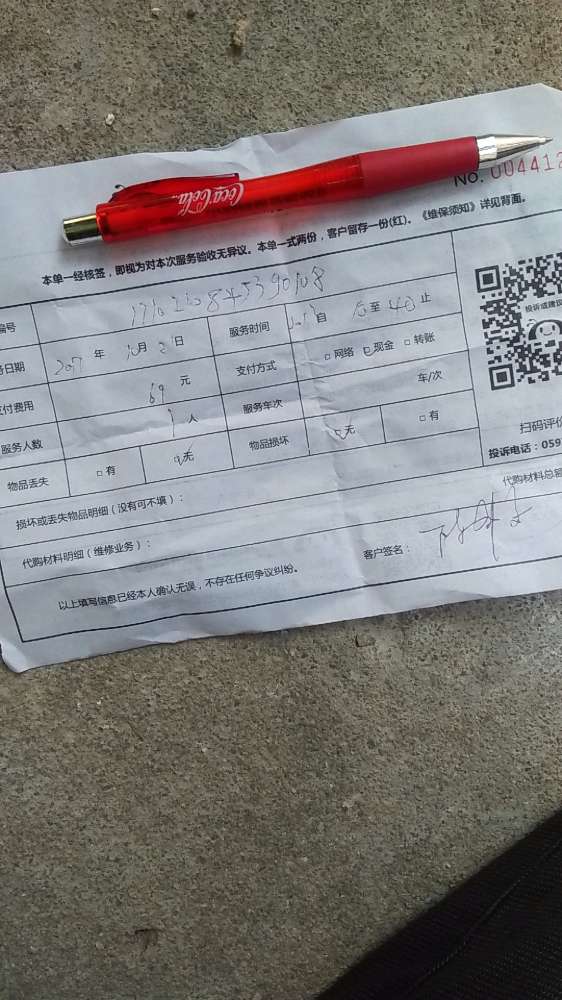 Coca-Cola
No. 004412
本单一经核签，即视为对本次服务验收无异议。本单一式两份，客户留存一份(红)。《维保须知》详见背面。
编号
日期 2017 年 10月 21日 服务时间 自 至 止
支付费用 69 元 支付方式 □网络 □现金 □转账
服务人数 1 人 服务车次 车/次
物品丢失 □有 □无 物品损坏 □无 □有
投诉或建议
扫码评价
投诉电话：059
损坏或丢失物品明细（没有可不填）：
代购材料总额
代购材料明细（维修业务）：
客户签名：
以上填写信息已经本人确认无误，不存在任何争议纠纷。